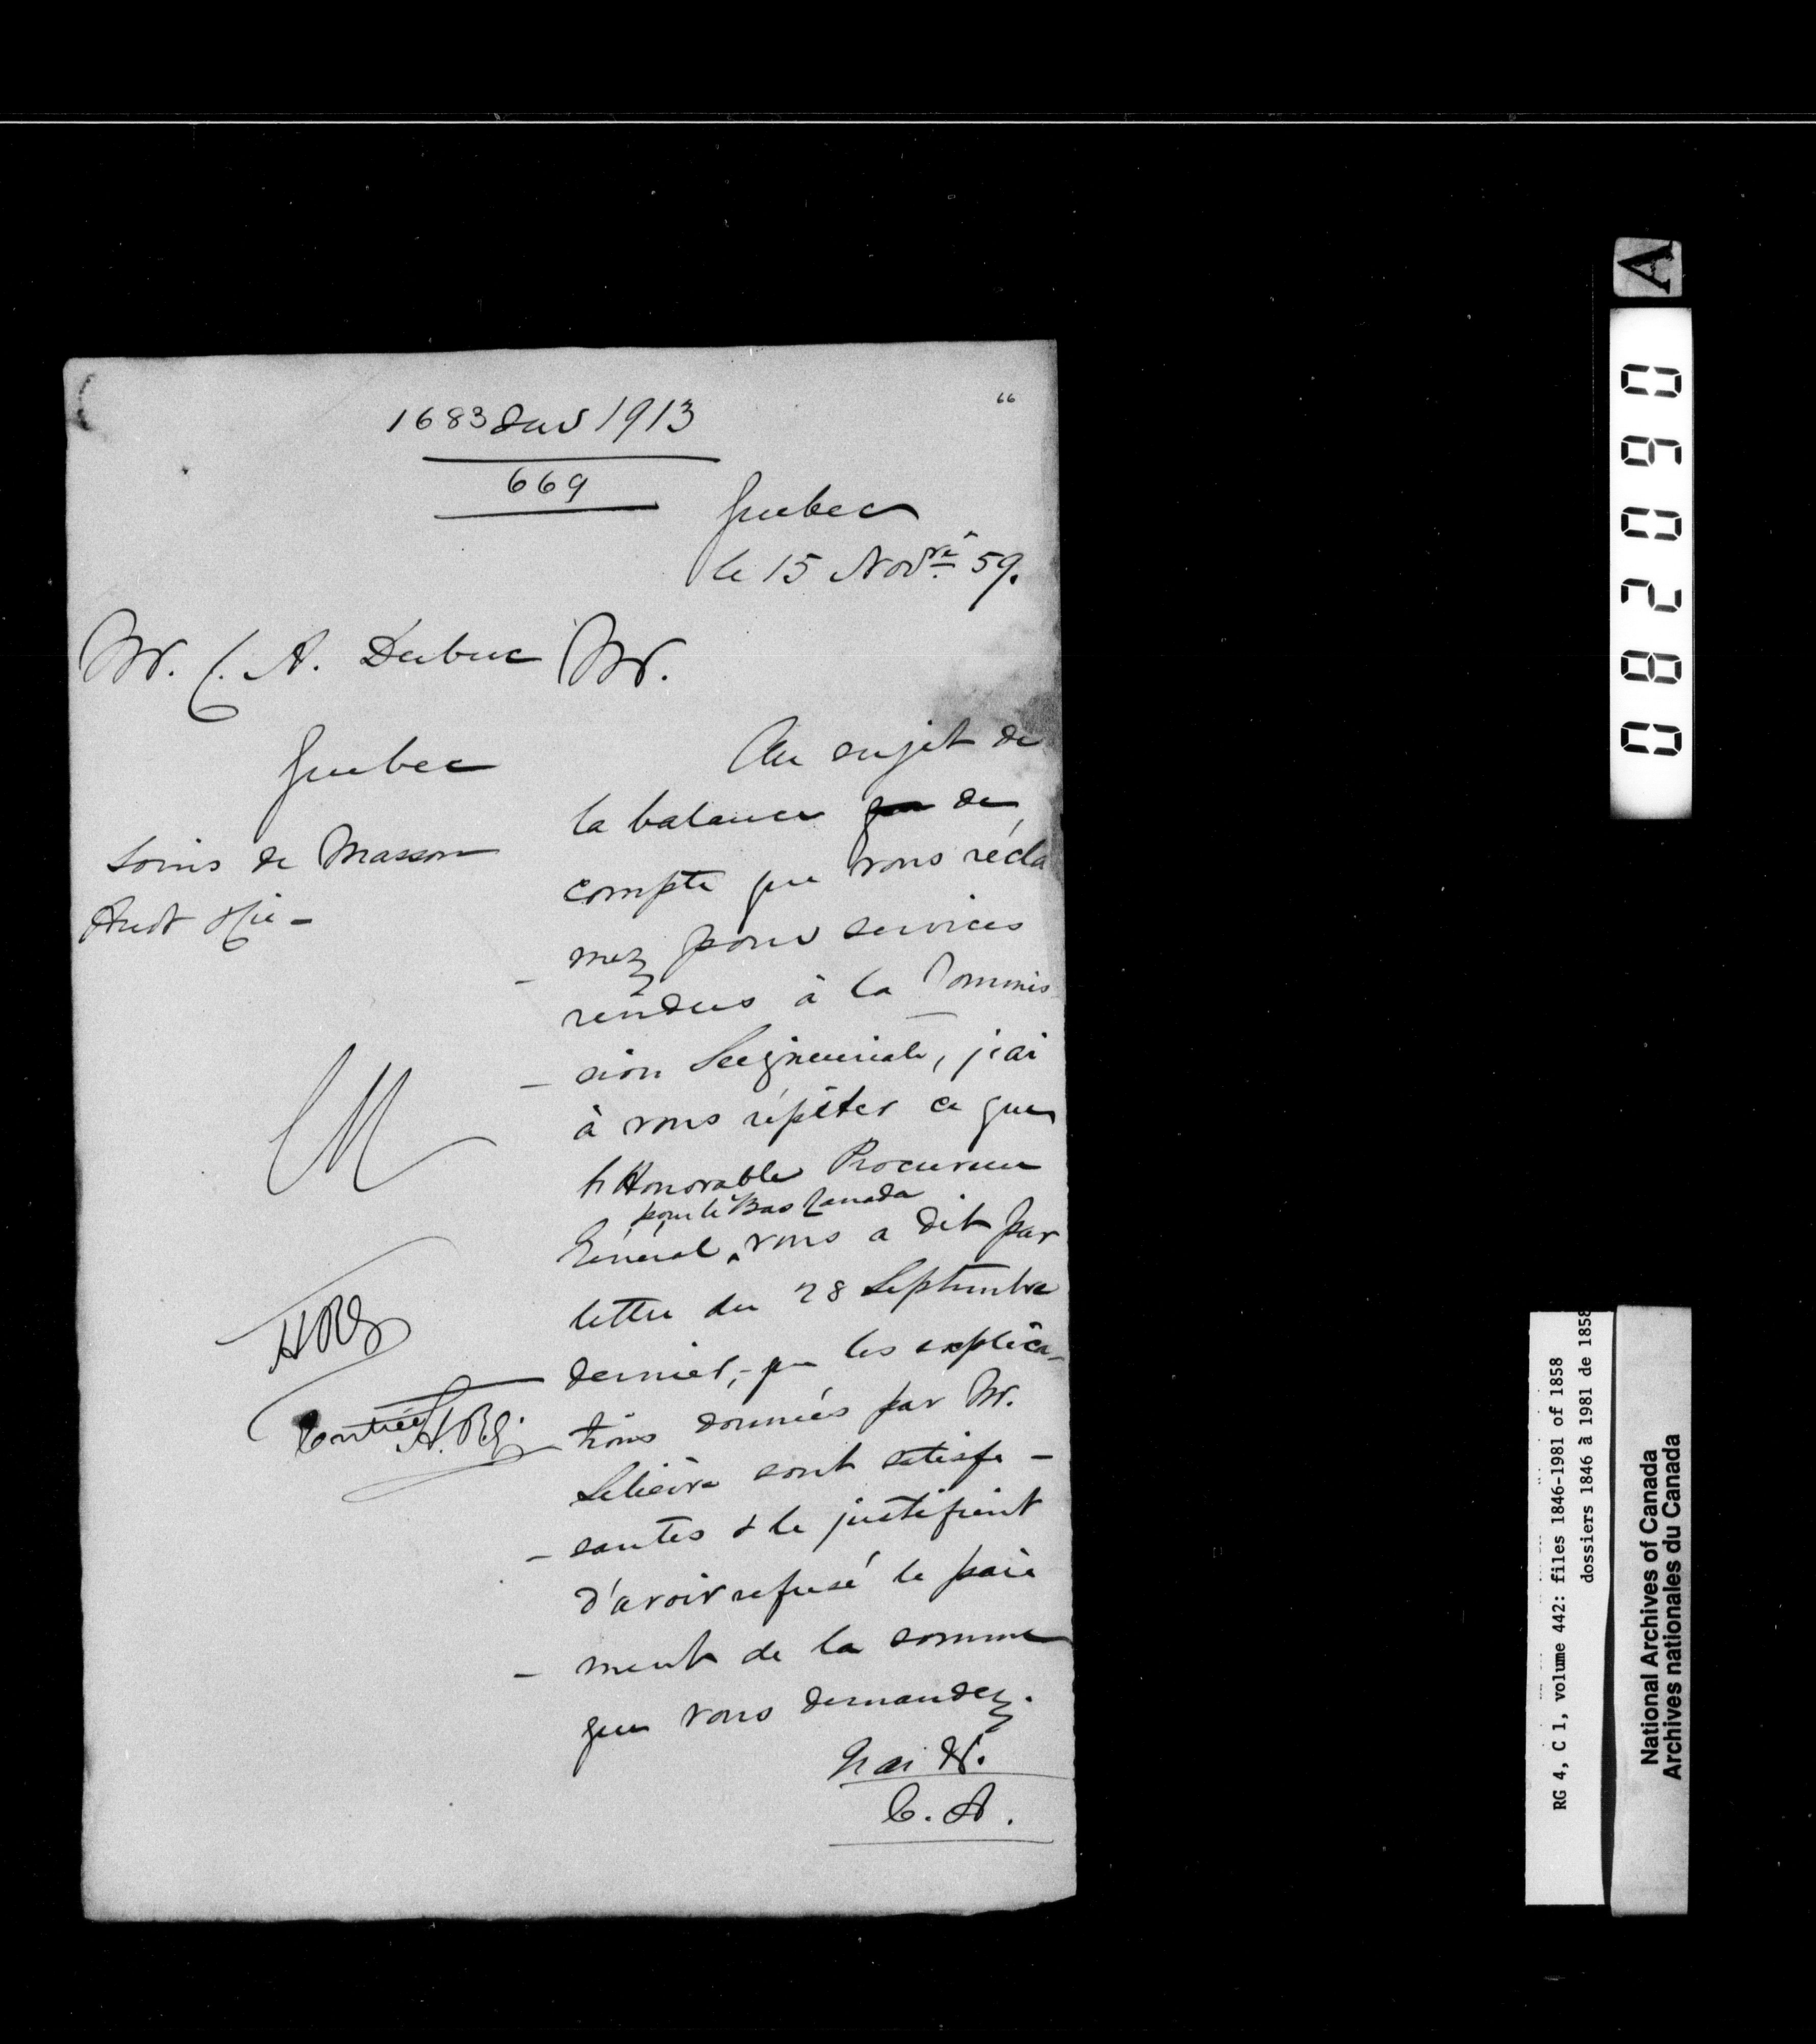 1683 sur 1913
669
66
Quebec
le 15 Novre 59.
Mr. C. A. Dubuc
Quebec
Soins de Masson
Mr.
Au sujet de
la balance de
compte que vous récla
mez pour services
rendus à la Commis
sion Seigneuriale, j'ai
à vous répéter ce que
l'Honorable Procureur
pour le Bas Canada
Général vous a dit par
lettre du 28 Septembre
dernier, que les explica-
tions données par Mr.
Lelièvre sont satisfe-
santes & le justifient
d'avoir refusé le paie
ment de la somme
que vous demandez.
J'ai &.
C. A.
Entrée
A
082060
RG 4, C 1, volume 442: files 1846-1981 of 1858
dossiers 1846 à 1981 de 1858
National Archives of Canada
Archives nationales du Canada